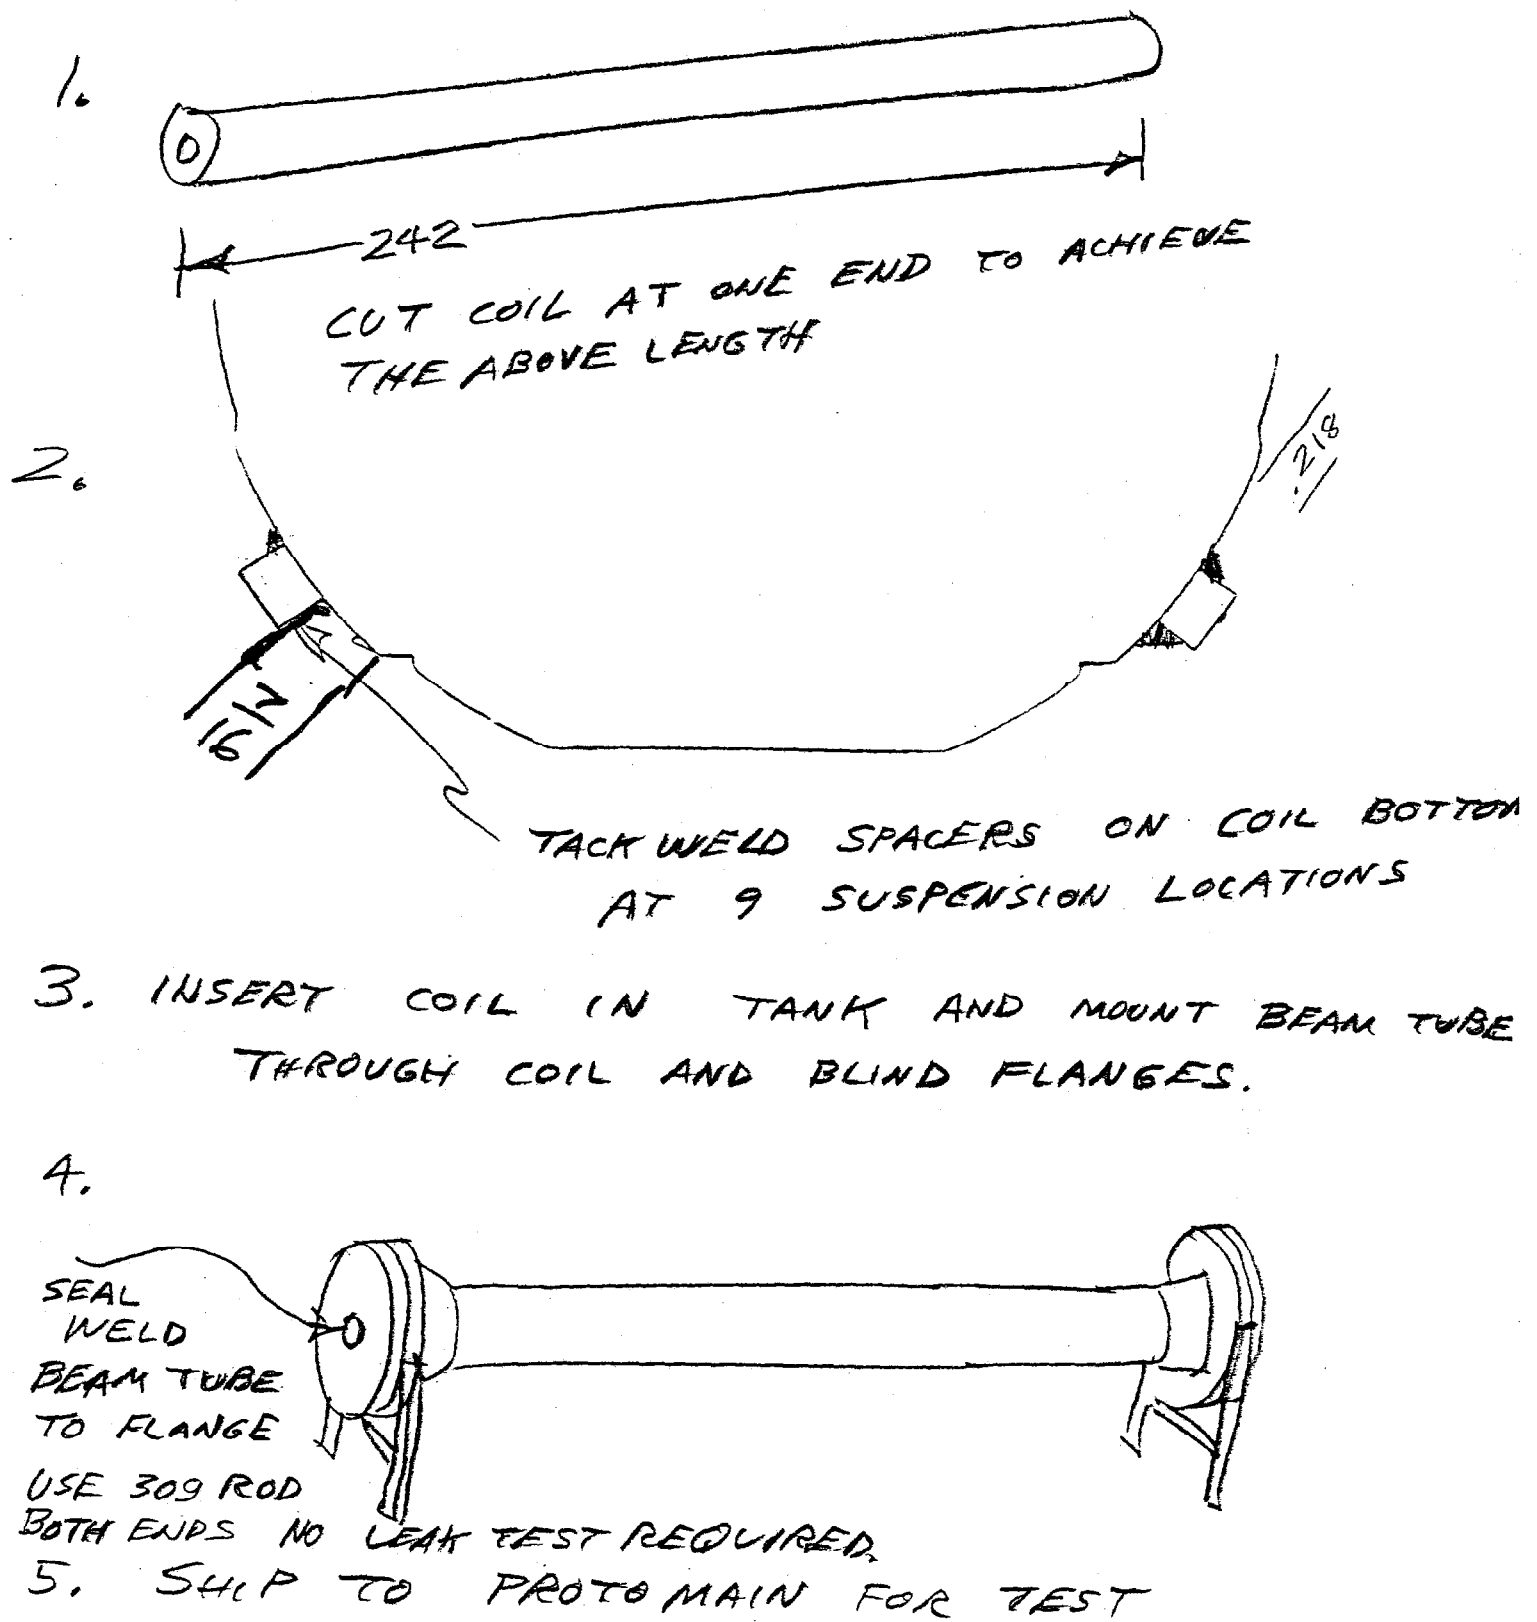 1.
242
CUT COIL AT ONE END TO ACHIEVE
THE ABOVE LENGTH
2.
.218
7/16
TACK WELD SPACERS ON COIL BOTTOM
AT 9 SUSPENSION LOCATIONS
3. INSERT COIL IN TANK AND MOUNT BEAM TUBE
THROUGH COIL AND BLIND FLANGES.
4.
SEAL
WELD
BEAM TUBE
TO FLANGE
USE 309 ROD
BOTH ENDS NO LEAK TEST REQUIRED.
5. SHIP TO PROTO MAIN FOR TEST